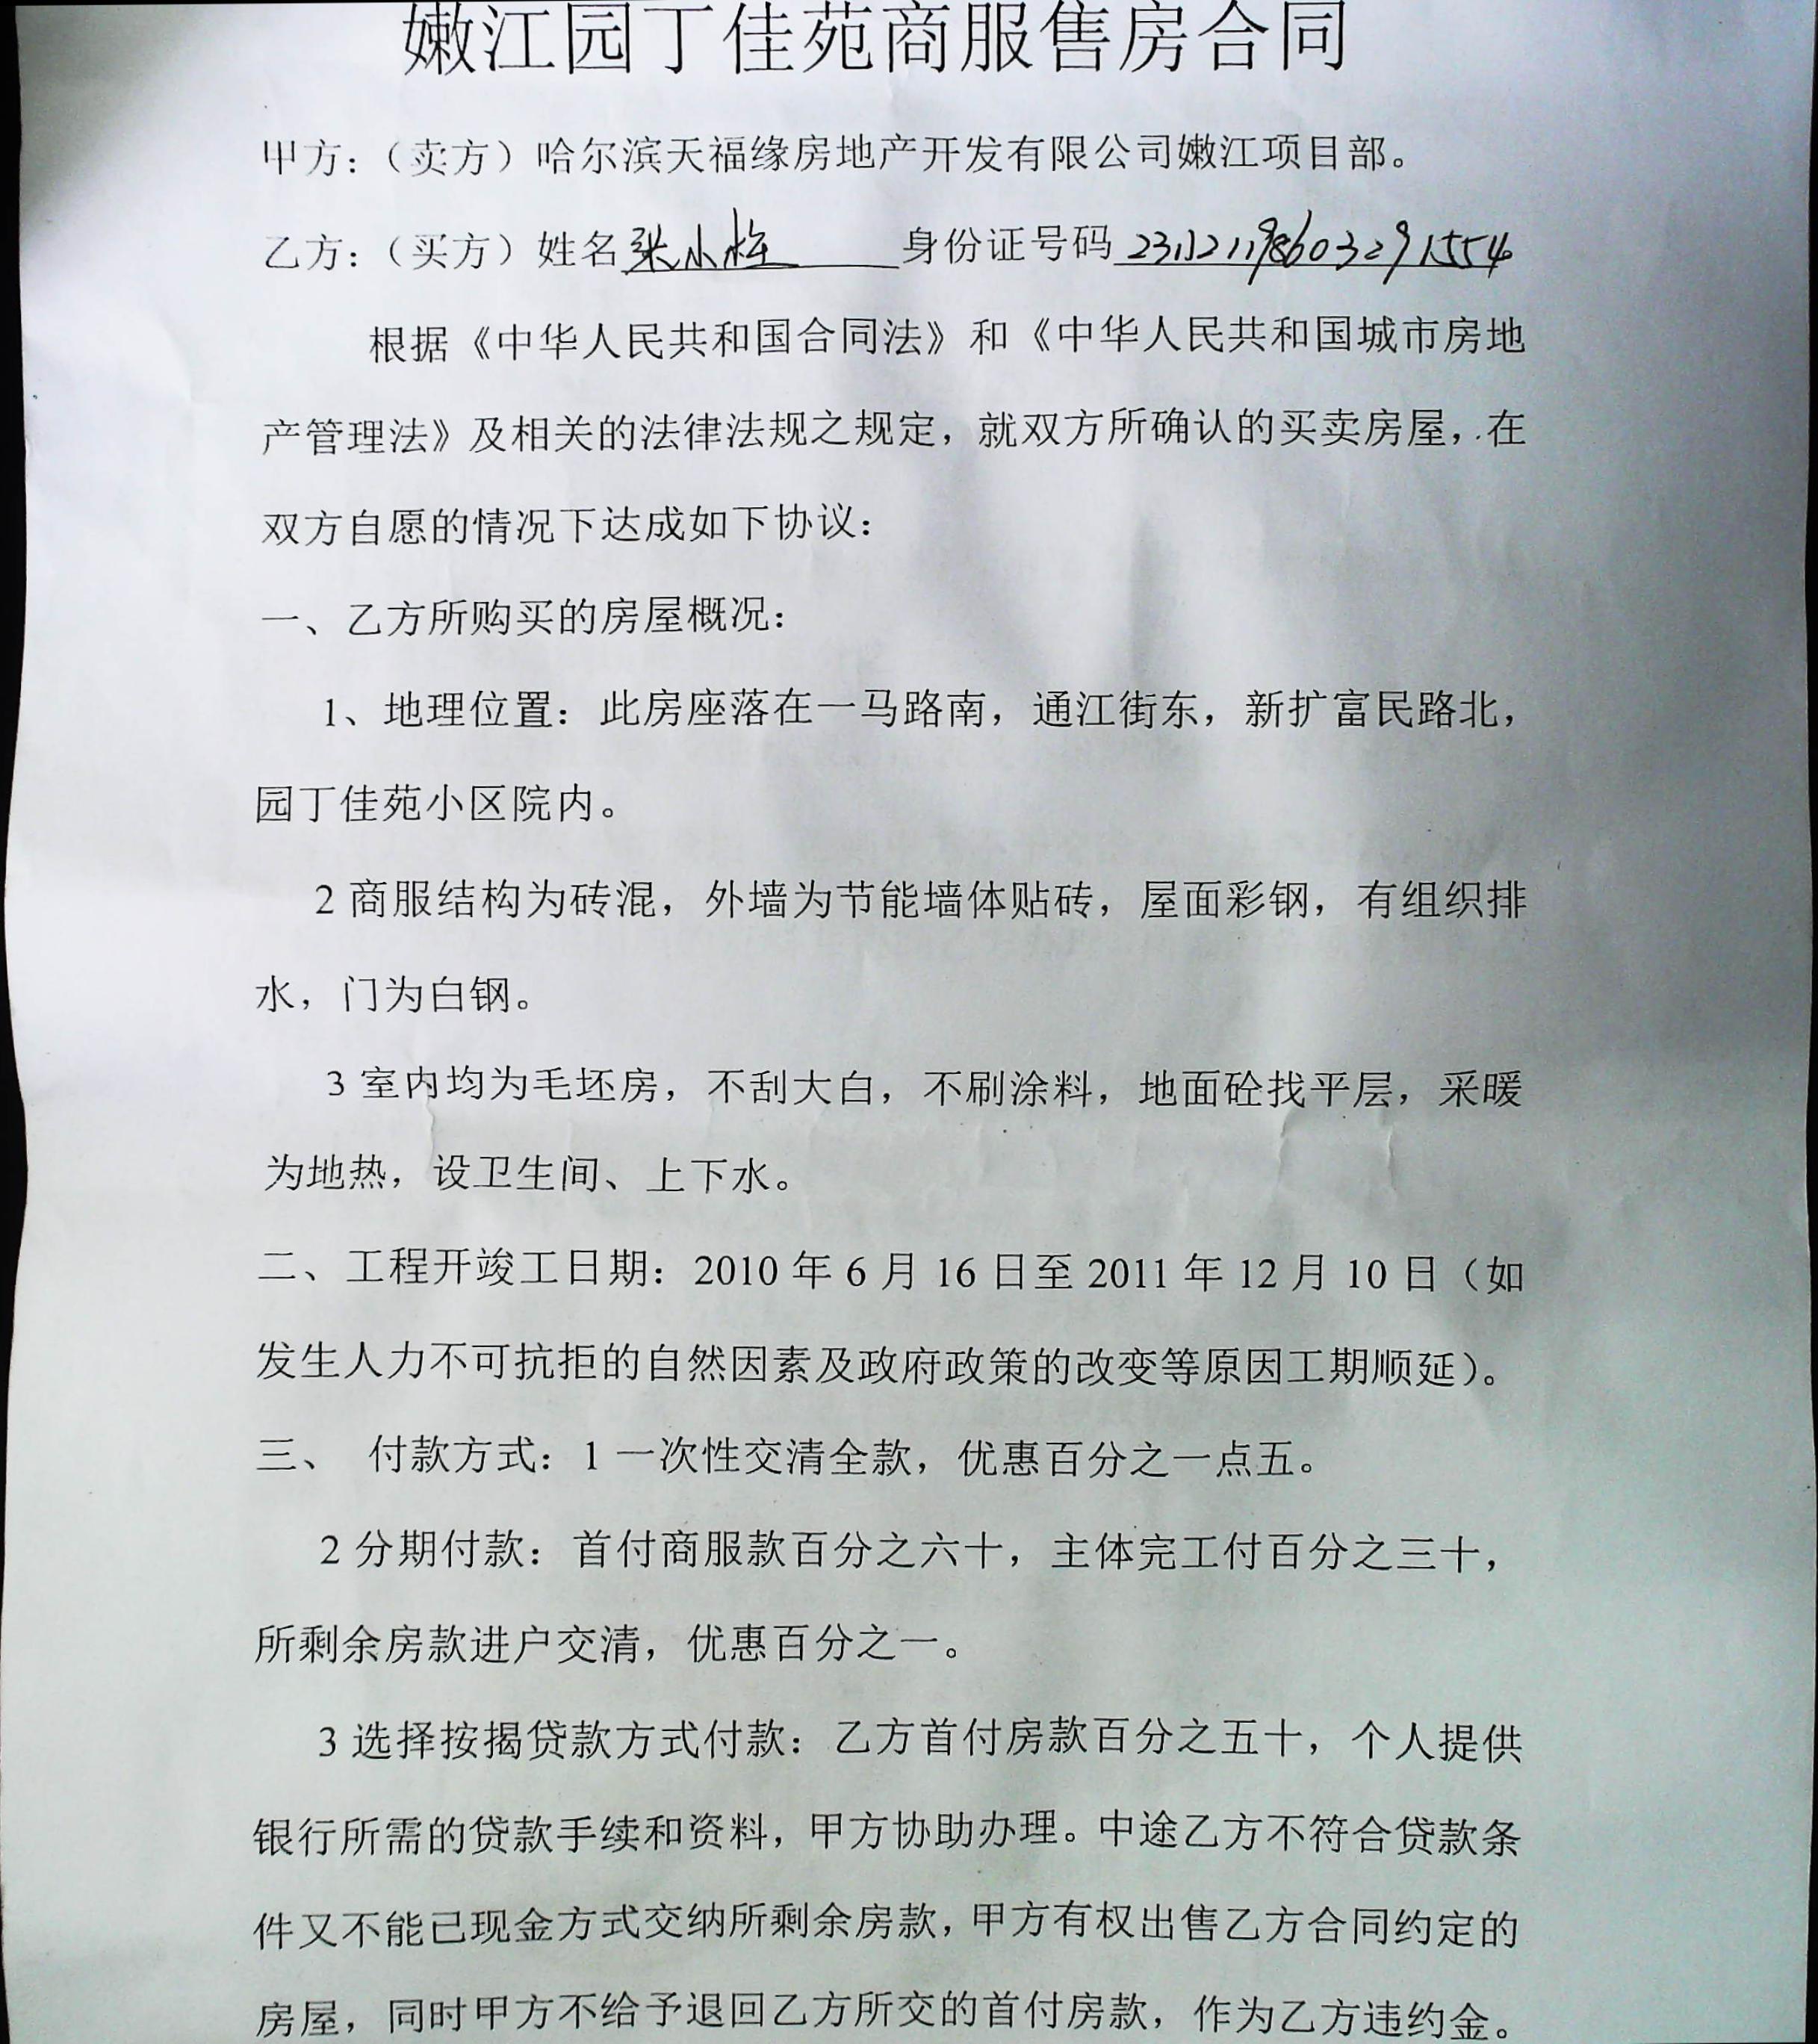 嫩江园丁佳苑商服售房合同
甲方：（卖方）哈尔滨天福缘房地产开发有限公司嫩江项目部。
乙方：（买方）姓名 张小 身份证号码
根据《中华人民共和国合同法》和《中华人民共和国城市房地
产管理法》及相关的法律法规之规定，就双方所确认的买卖房屋，在
双方自愿的情况下达成如下协议：
一、乙方所购买的房屋概况：
1、地理位置：此房座落在一马路南，通江街东，新扩富民路北，
园丁佳苑小区院内。
2 商服结构为砖混，外墙为节能墙体贴砖，屋面彩钢，有组织排
水，门为白钢。
3 室内均为毛坯房，不刮大白，不刷涂料，地面砼找平层，采暖
为地热，设卫生间、上下水。
二、工程开竣工日期：2010 年 6 月 16 日至 2011 年 12 月 10 日（如
发生人力不可抗拒的自然因素及政府政策的改变等原因工期顺延）。
三、 付款方式：1 一次性交清全款，优惠百分之一点五。
2 分期付款：首付商服款百分之六十，主体完工付百分之三十，
所剩余房款进户交清，优惠百分之一。
3 选择按揭贷款方式付款：乙方首付房款百分之五十，个人提供
银行所需的贷款手续和资料，甲方协助办理。中途乙方不符合贷款条
件又不能已现金方式交纳所剩余房款，甲方有权出售乙方合同约定的
房屋，同时甲方不给予退回乙方所交的首付房款，作为乙方违约金。